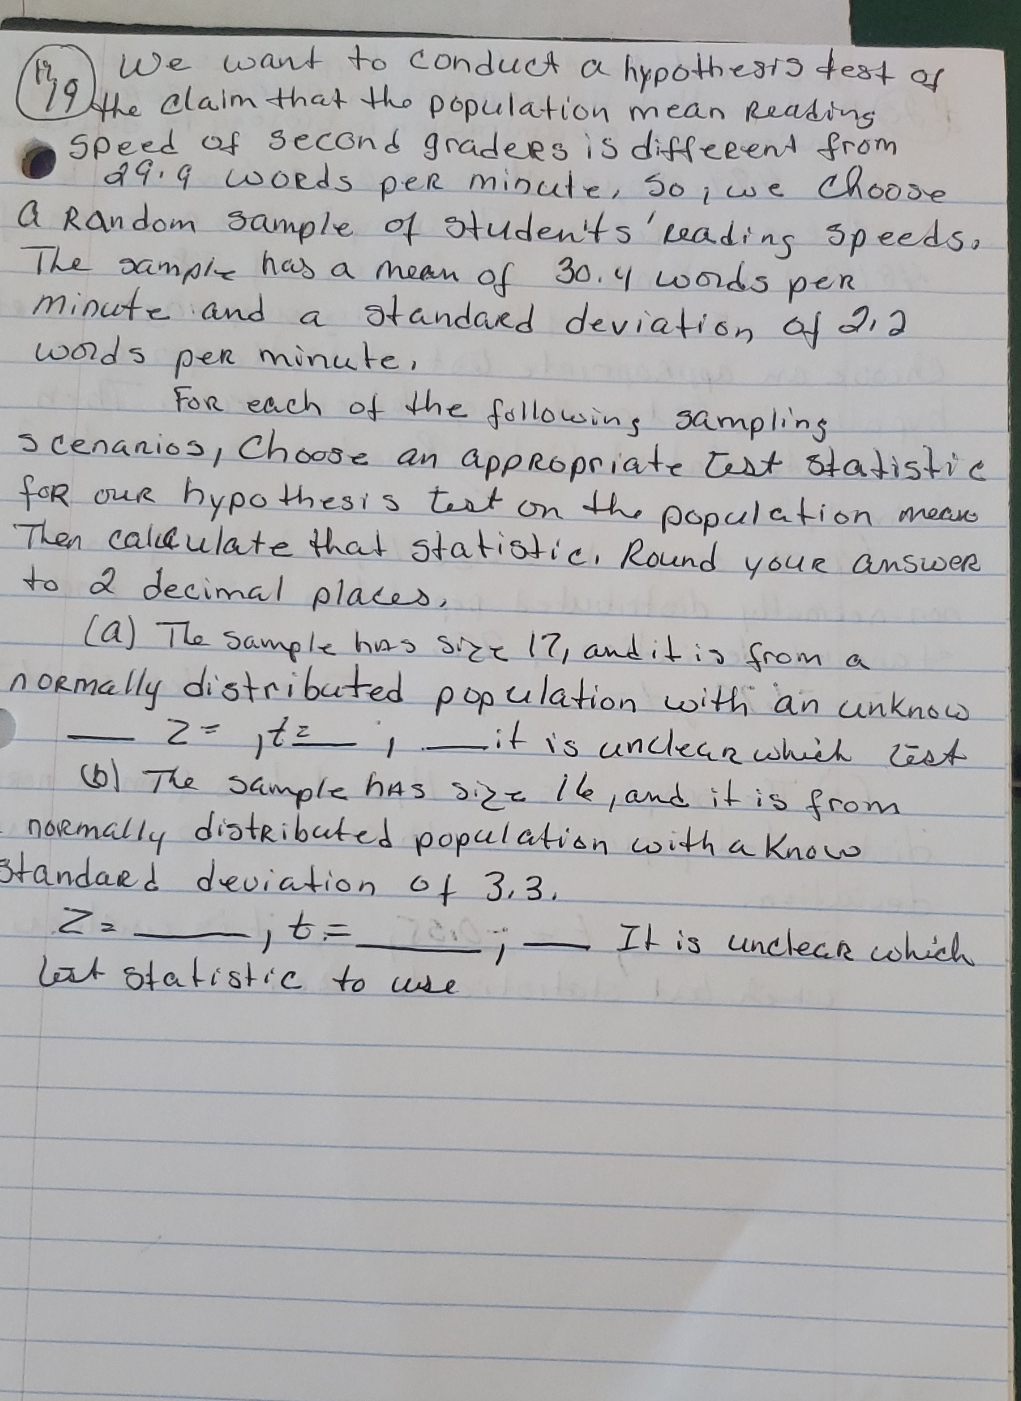 19 We want to conduct a hypothesis test of
the claim that the population mean Reading
speed of second graders is different from
29.9 words per minute, so, we choose
a Random sample of students' reading speeds.
The sample has a mean of 30.4 words per
minute and a standard deviation of 2.2
words per minute.
For each of the following sampling
scenarios, Choose an appropriate test statistic
for our hypothesis test on the population mean
Then calculate that statistic. Round your answer
to 2 decimal places.
(a) The sample has size 17, and it is from a
normally distributed population with an unknow
___ z= , t= ___ , ___ it is unclear which test
(b) The sample has size 16, and it is from
normally distributed population with a know
standard deviation of 3.3.
Z= ___, t= ___; ___ It is unclear which
test statistic to use